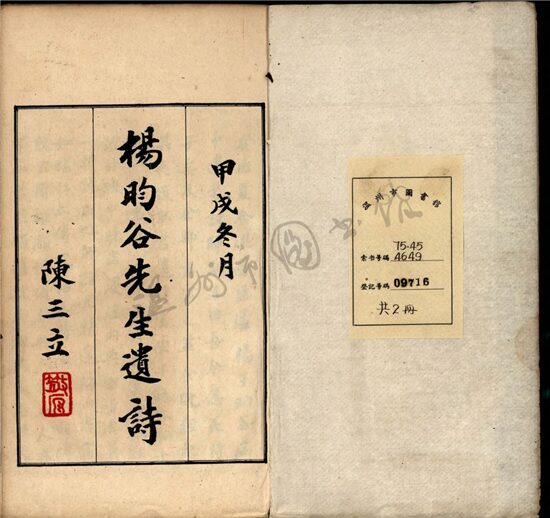 甲戌冬月
楊昀谷先生遺詩
陳三立
散原
温州市圖書館
索书号碼 75.45
4649
登记号碼 09716
共2冊
温州市圖書館